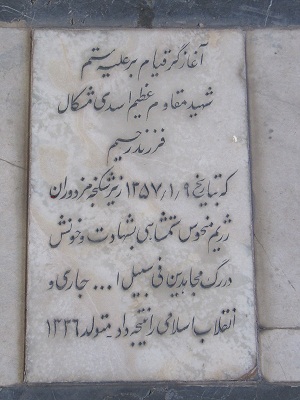 آغازگر قیام بر علیه ستم
شهید مقاوم عظیم اسدی مشکال
فرزند رحیم
که بتاریخ ۱۳۵۷/۱/۹ زیر شکنجه مزدوران
رژیم منحوس ستمشاهی بشهادت و خونش
در رگ مجاهدین فی سبیل ا... جاری و
انقلاب اسلامی را نتیجه داد - متولد ۱۳۳۶